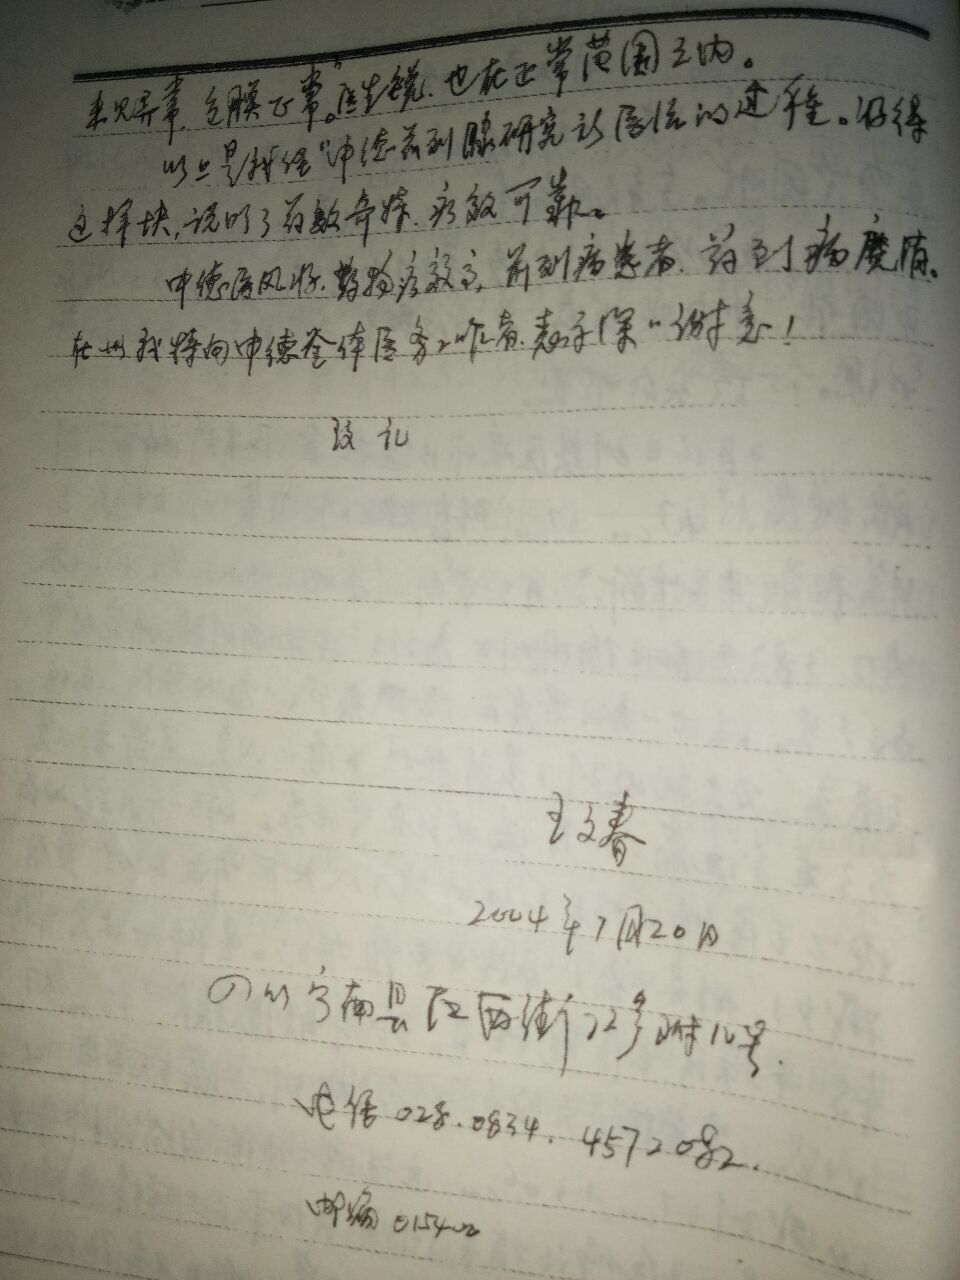 未见异常,包膜正常。医生说,也在正常范围之内。
以上是我经"中德前列腺研究所医治的过程。好得
这样快,说明了药效奇特,疗效可靠。
中德医风好,药物疗效高,前列病患者,药到病魔除。
在此我特向中德全体医务工作者,表示深"谢意!
致礼
王文春
2004年7月20日
四川宁南县正西街22号附10号.
电话 028.0834.4572082.
邮编 615400